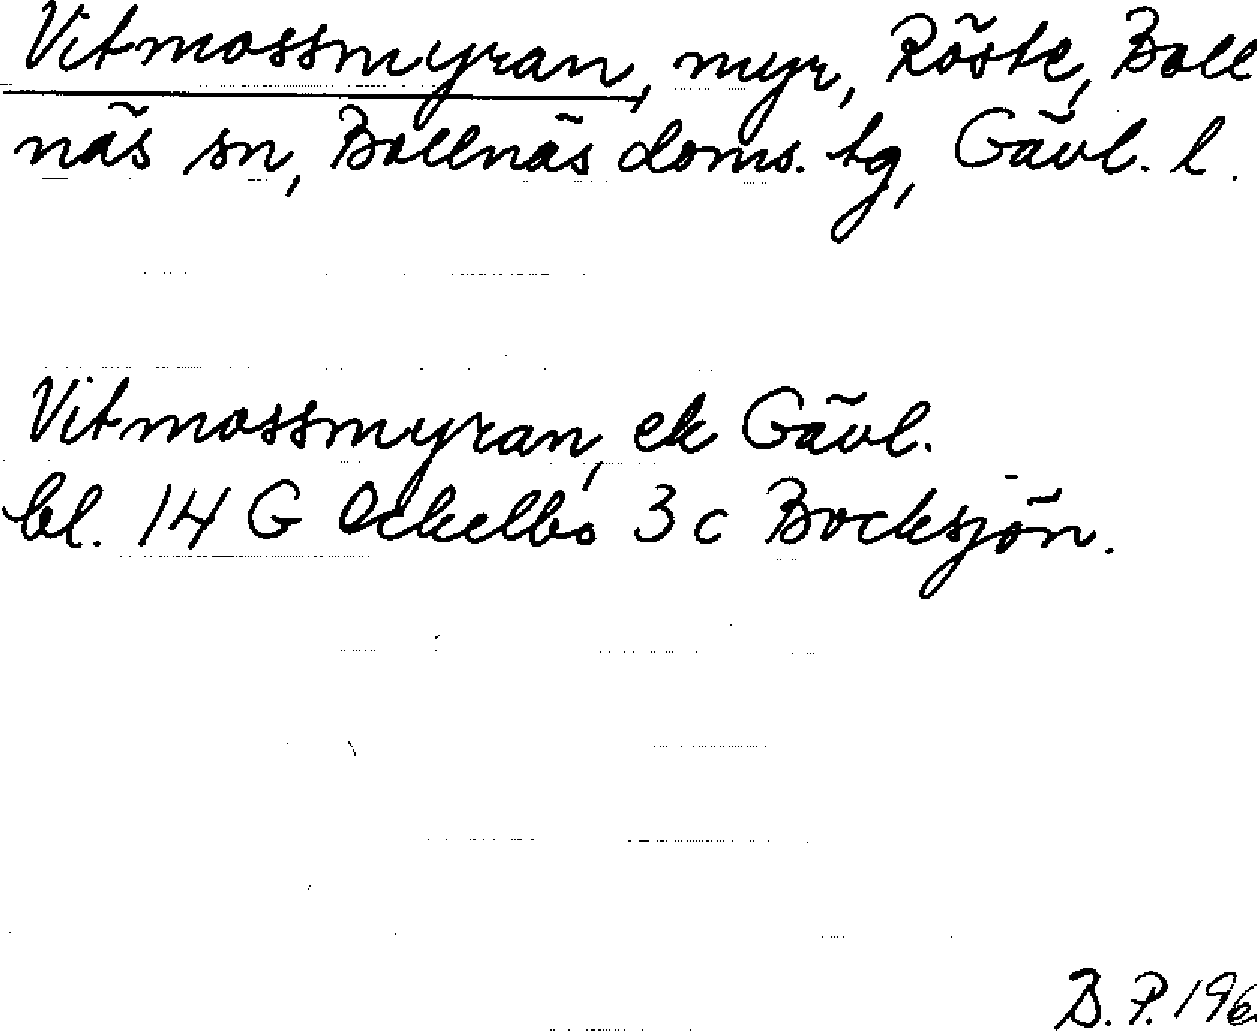 Vitmossmyran, myr, Röste, Boll
näs sn, Bollnäs doms. tg, Gävl. l.
Vitmossmyran, ek Gävl.
bl. 14 G Ockelbo 3 c Bocksjön.
B. P. 196